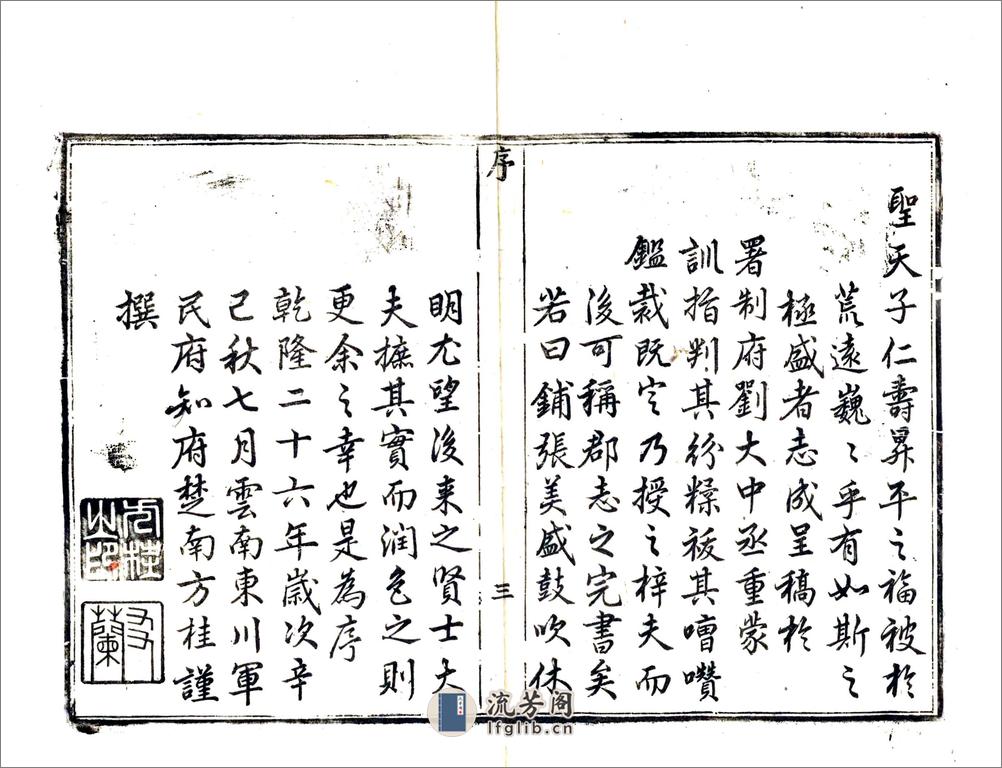 聖天子仁壽昇平之福被於
荒遠巍〻乎有如斯之
極盛者志成呈稿於
署制府劉大中丞重蒙
訓指判其紛糅祓其嘈囋
鑑裁既定乃授之梓夫而
後可稱郡志之完書矣
若曰鋪張美盛鼓吹休
序
三
明尤望後来之賢士大
夫摭其實而润色之則
更余之幸也是為序
乾隆二十六年歲次辛
巳秋七月雲南東川軍
民府知府楚南方桂謹
撰
方桂
山印
友蘭
流芳阁
lfglib.cn